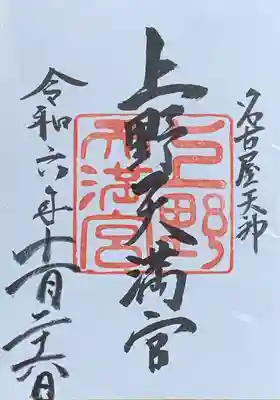 名古屋天神
上野天満宮
上野
天満宮
令和六年十一月二十六日